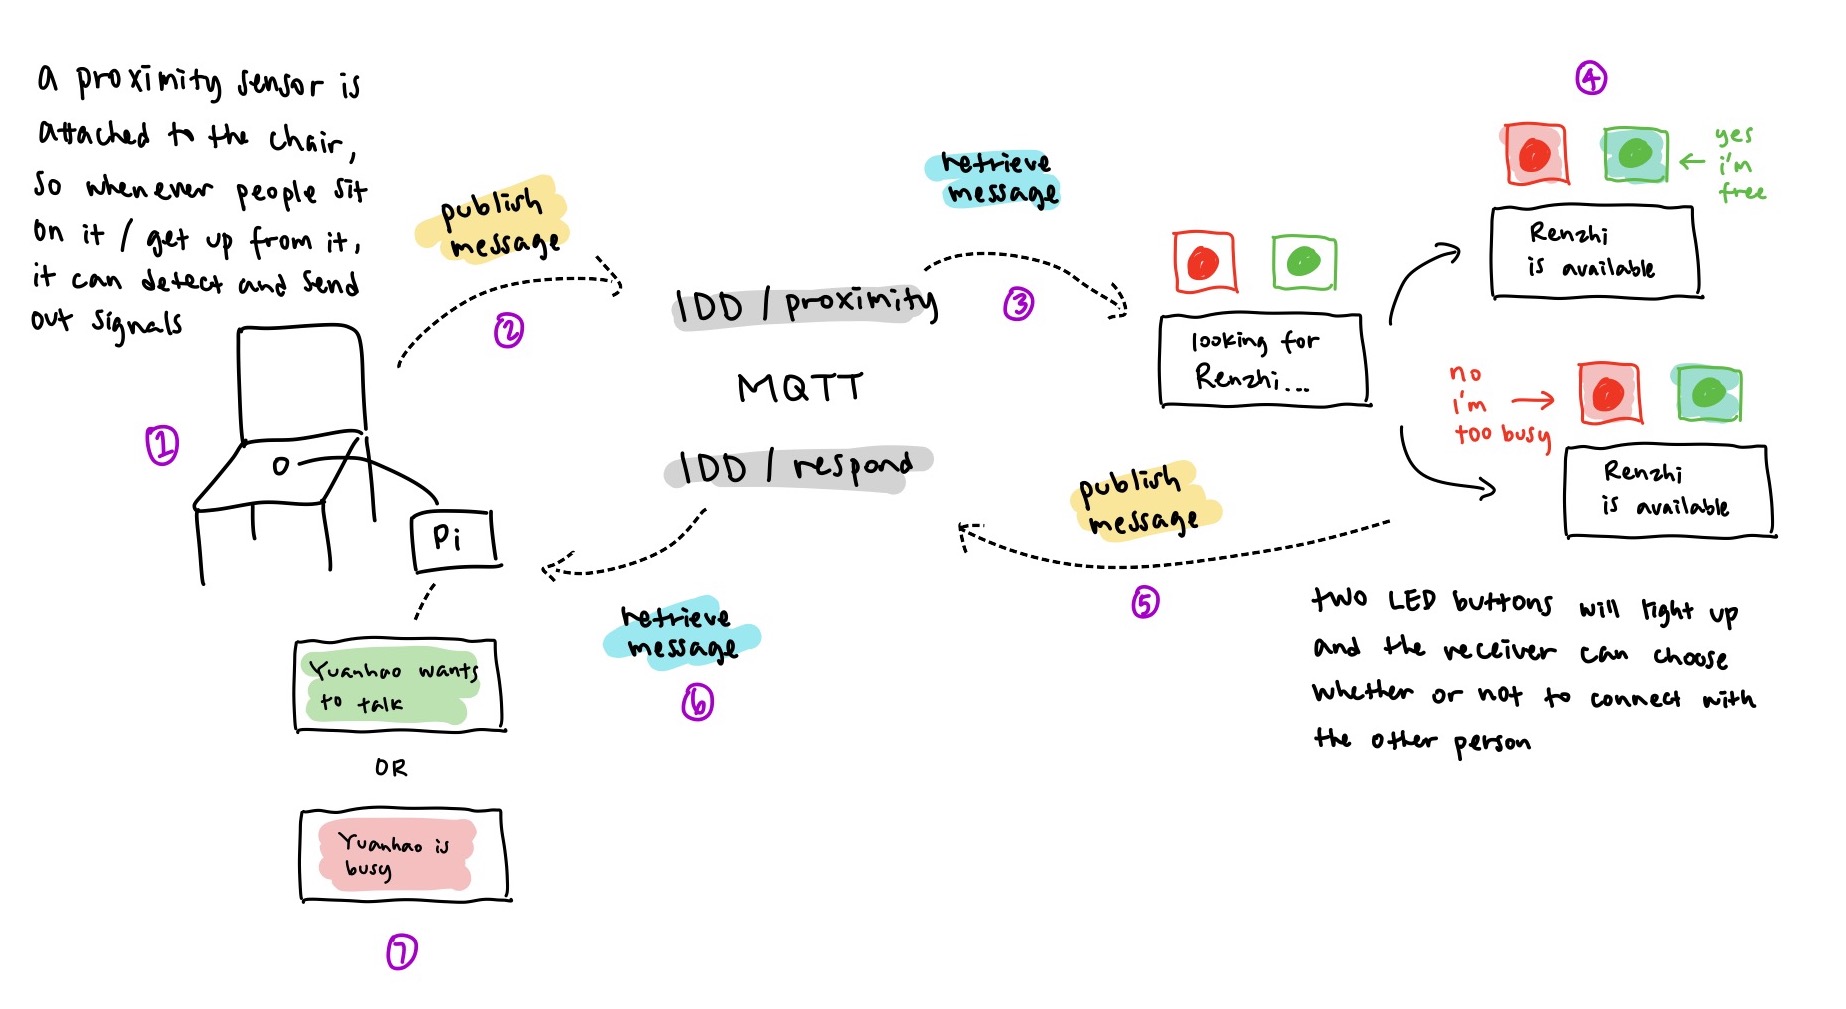 a proximity sensor is
attached to the chair,
so whenever people sit
on it / get up from it,
it can detect and send
out signals
1
publish
message
2
IDD / proximity
MQTT
IDD / respond
retrieve
message
3
looking for
Renzhi...
4
yes
i'm
free
Renzhi
is available
no
i'm
too busy
Renzhi
is available
two LED buttons will light up
and the receiver can choose
whether or not to connect with
the other person
publish
message
5
retrieve
message
6
Pi
Yuanhao wants
to talk
OR
Yuanhao is
busy
7